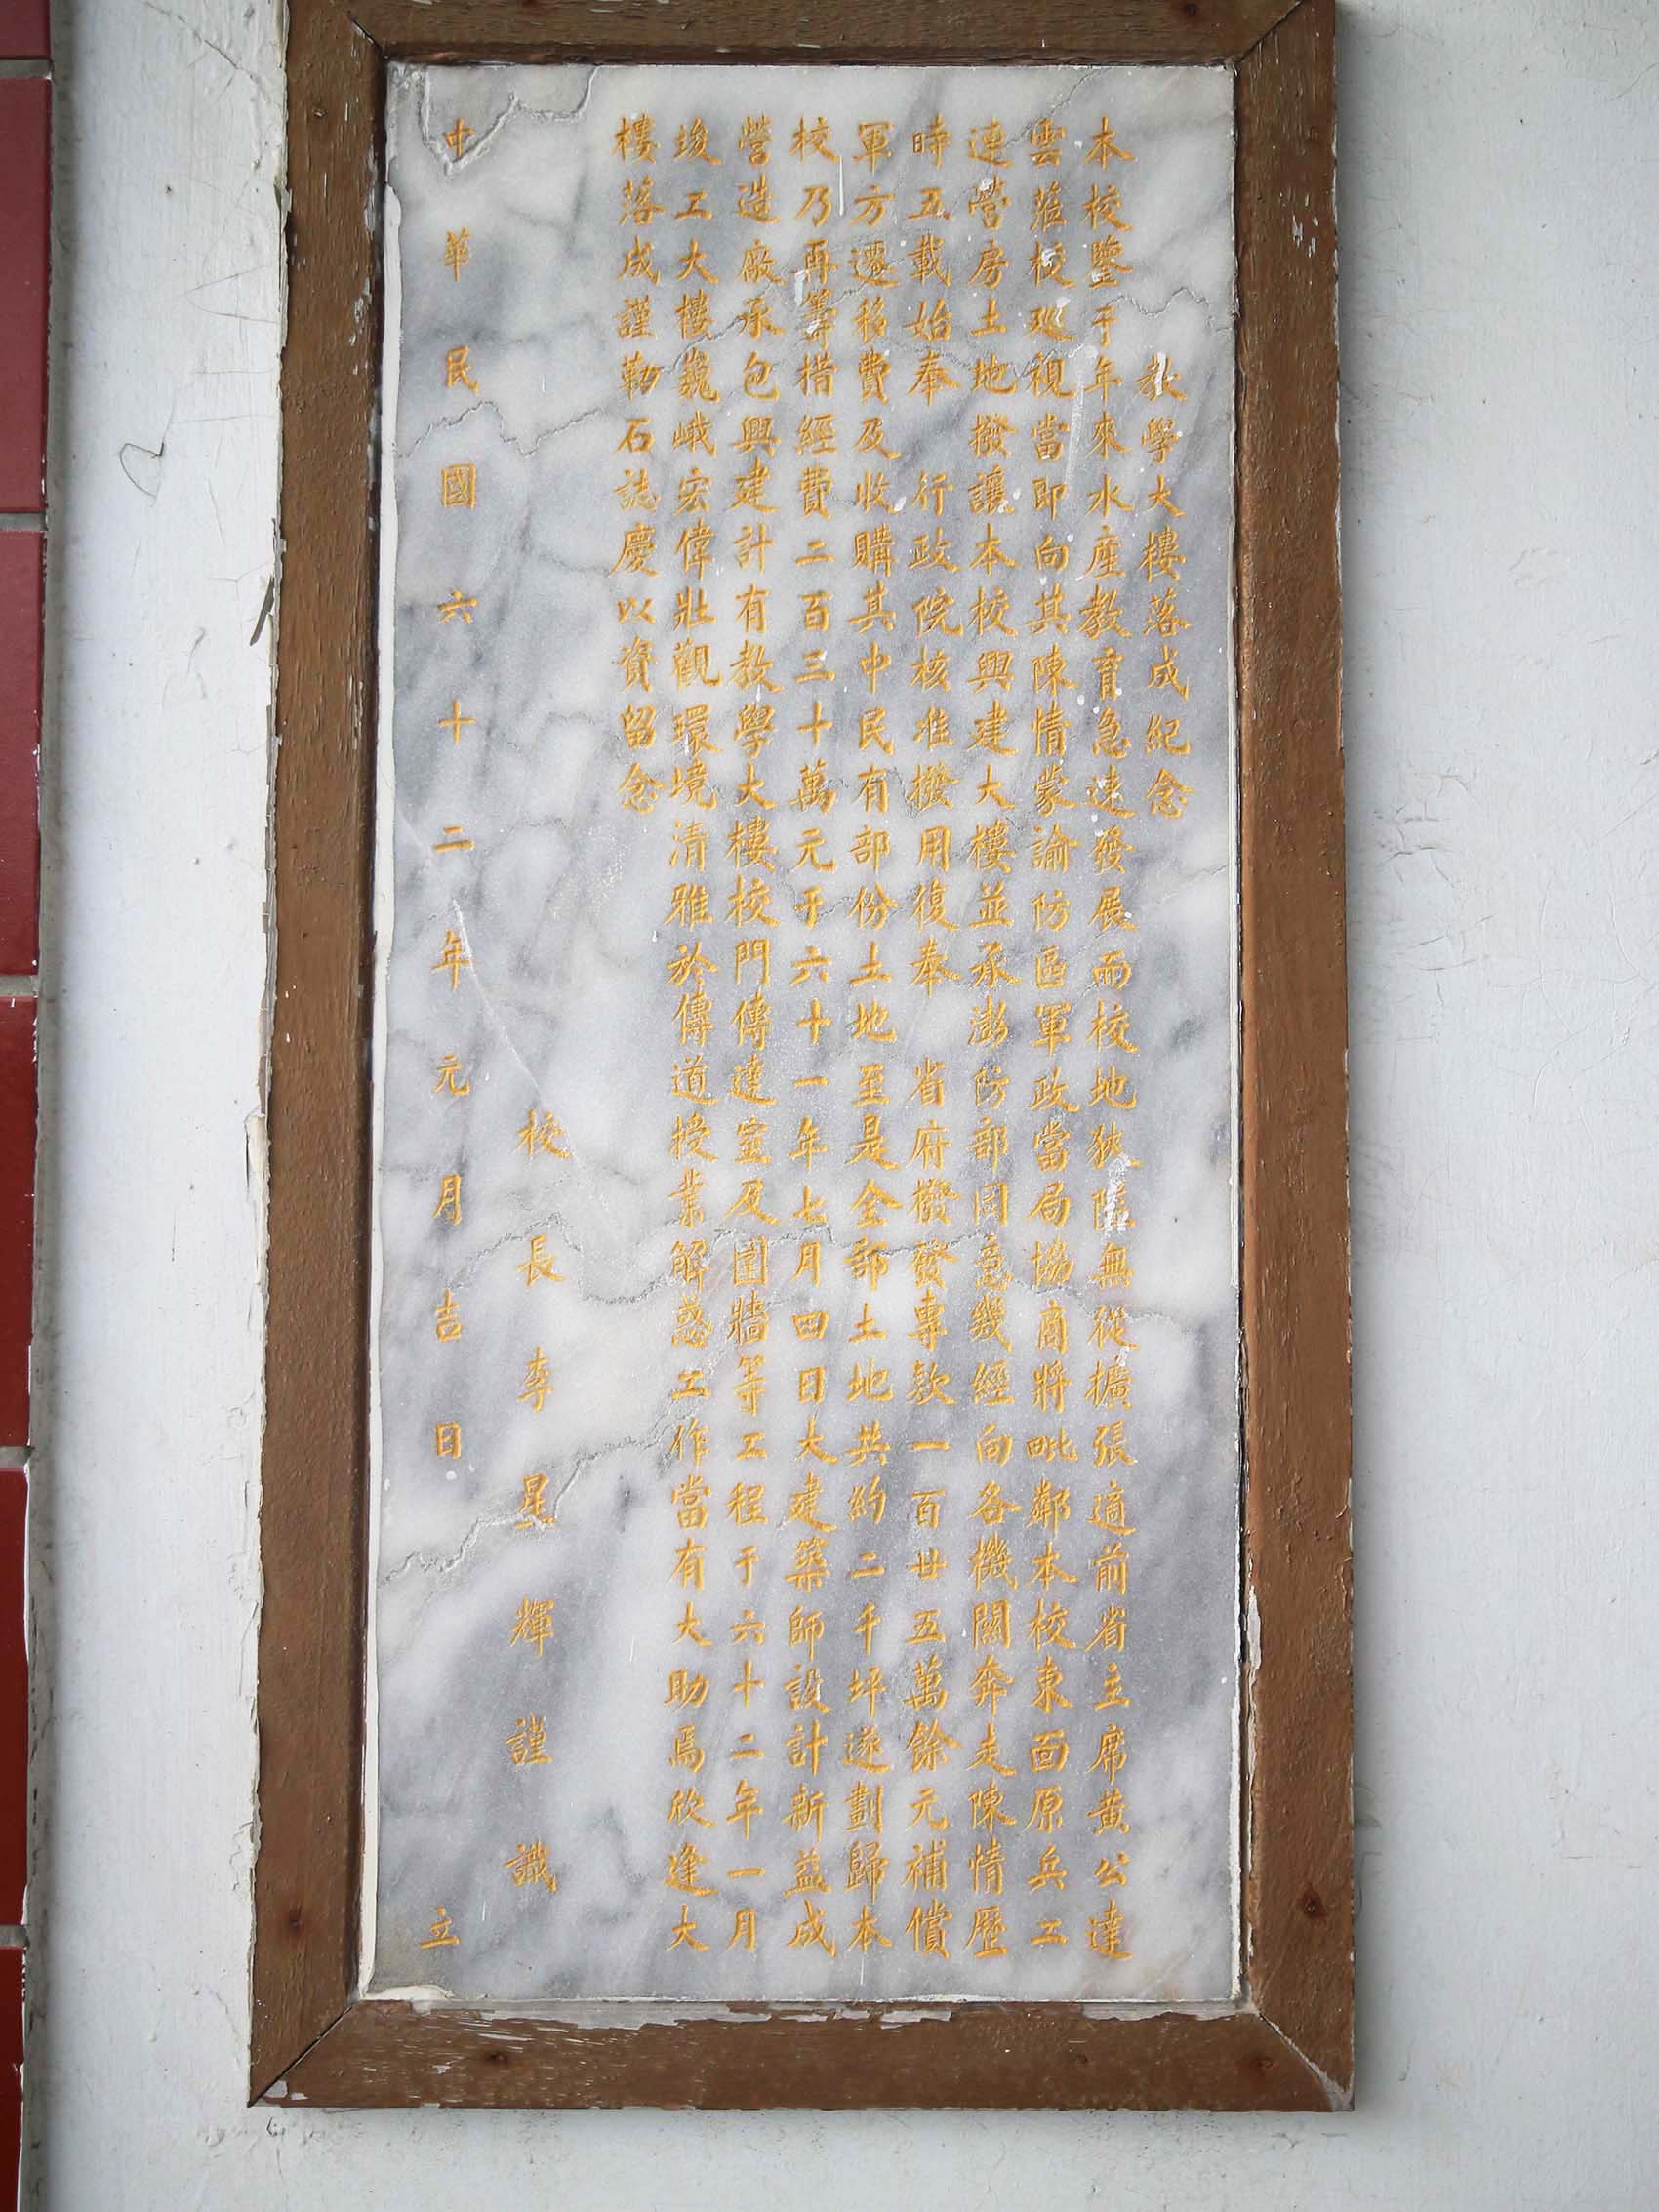 教學大樓落成紀念
本校鑒于年來水產教育急速發展而校地狹隘無從擴張適前省主席黃公達
雲蒞校巡視當即向其陳情蒙諭防區軍政當局協商將毗鄰本校東面原兵工
連營房土地撥讓本校興建大樓並承澎防部同意幾經向各機關奔走陳情歷
時五載始奉　行政院核准撥用復奉　省府撥發專款一百廿五萬餘元補償
軍方遷移費及收購其中民有部份土地至是全部土地共約二千坪遂劃歸本
校乃再籌措經費二百三十萬元于六十一年七月四日大建築師設計新益成
營造廠承包興建計有教學大樓校門傳達室及圍牆等工程于六十二年一月
竣工大樓巍峨宏偉壯觀環境清雅於傳道授業解惑工作當有大助焉欣逢大
樓落成謹勒石誌慶以資留念
校長李星輝謹識
中華民國六十二年元月吉日立